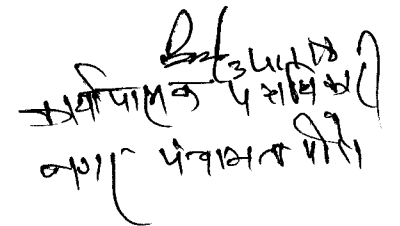 कार्यपालक पदाधिकारी
नगर पंचायत पीरो